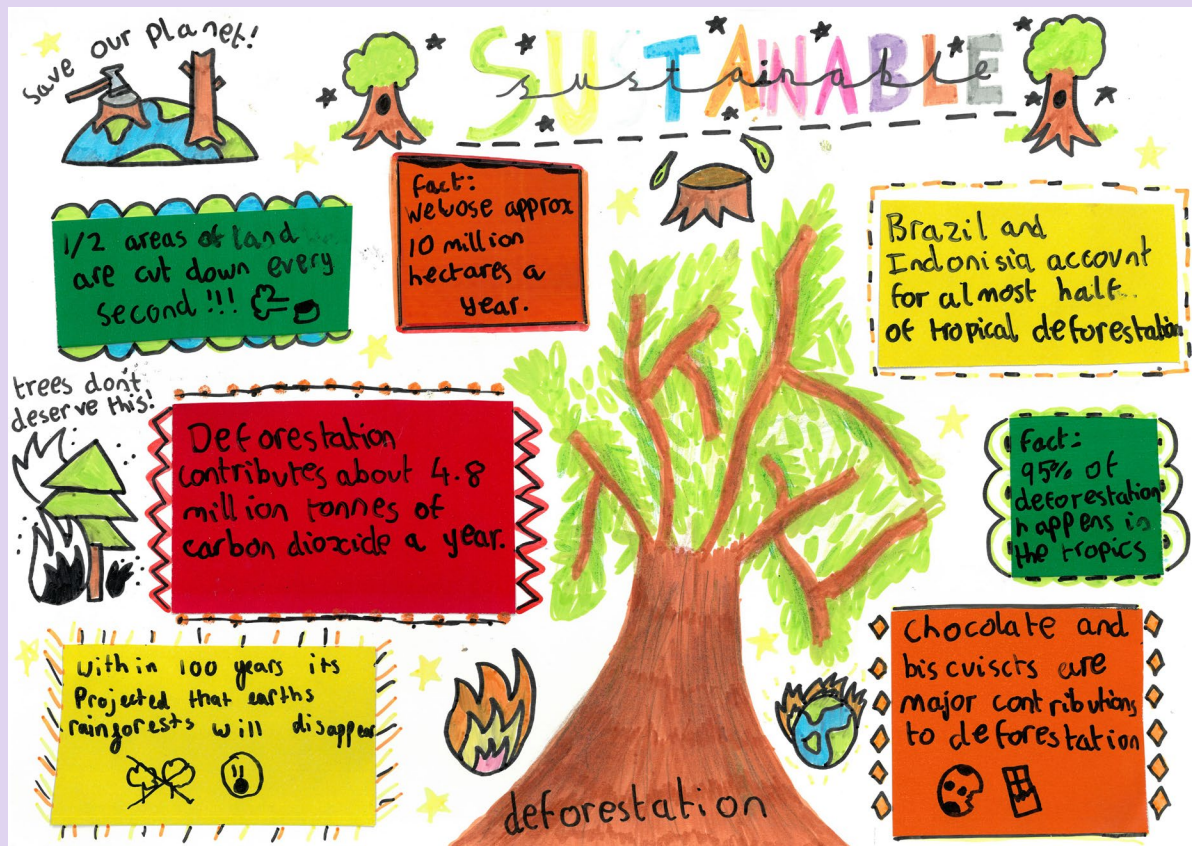 save our planet!
SUSTAINABLE
sustainable
1/2 areas of land
are cut down every
second!!!
Fact:
We lose approx
10 million
hectares a
year.
Brazil and
Indonisia account
for almost half
of tropical deforestation
trees don't
deserve this!
Deforestation
contributes about 4.8
million tonnes of
carbon dioxide a year.
Fact:
95% of
deforestation
happens in
the tropics
Within 100 years its
Projected that earths
rainforests will disappear
chocolate and
biscuiscts are
major contributions
to deforestation
deforestation